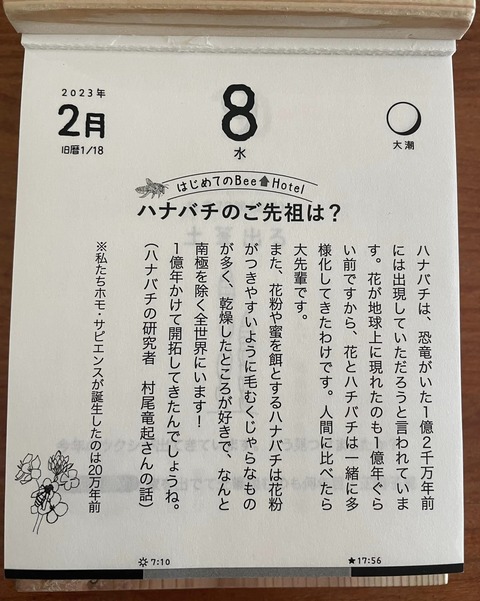 2023年
2月
旧暦1/18
8
水
大潮
はじめてのBee Hotel
ハナバチのご先祖は？
ハナバチは、恐竜がいた1億2千万年前
には出現していただろうと言われていま
す。花が地球上に現れたのも1億年ぐら
い前ですから、花とハチバチは一緒に多
様化してきたわけです。人間に比べたら
大先輩です。
また、花粉や蜜を餌とするハナバチは花粉
がつきやすいように毛むくじゃらなもの
が多く、乾燥したところが好きで、なんと
南極を除く全世界にいます！
1億年かけて開拓してきたんでしょうね。
（ハナバチの研究者　村尾竜起さんの話）
※私たちホモ・サピエンスが誕生したのは20万年前
7:10
17:56